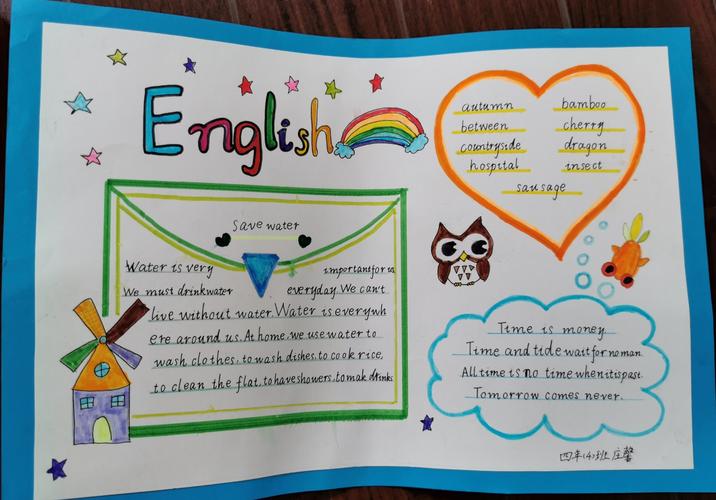 English
Save water
Water is very importantfor us
We must drinkwater everyday. We can't
live without water. Water is everywh
ere around us. At home, we use water to
wash clothes, to wash dishes, to cook rice,
to clean the flat, to have showers, to mak drinks
autumn bamboo
between cherry
countryside dragon
hospital insect
sausage
Time is money.
Time and tide wait for no man.
All time is no time when it is past.
Tomorrow comes never.
四年(4)班 庄馨